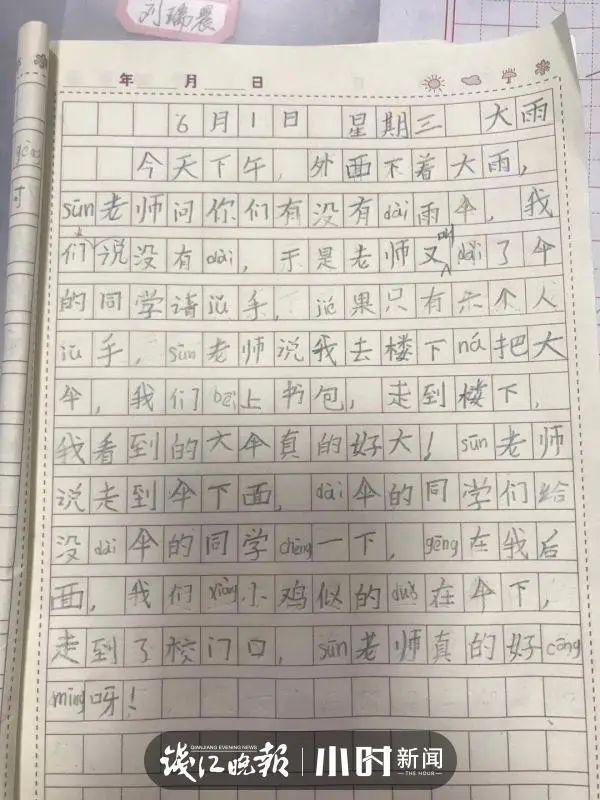 刘瑞晨
年 月 日
6月1日 星期三 大雨
今天下午，外面下着大雨，
sūn老师问你们有没有dài雨伞，我
们说没有dài，于是老师又叫dài了伞
的同学请jǔ手，jié果只有六个人
jǔ手，sūn老师说我去楼下ná把大
伞，我们bēi上书包，走到楼下，
我看到的大伞真的好大！sūn老师
说走到伞下面，dài伞的同学们给
没dài伞的同学chēng一下，gēng在我后
面，我们xiàng小鸡似的duǒ在伞下，
走到了校门口，sūn老师真的好cōng
mīng呀！
钱江晚报 小时新闻
QIANJIANG EVENING NEWS
THE HOUR